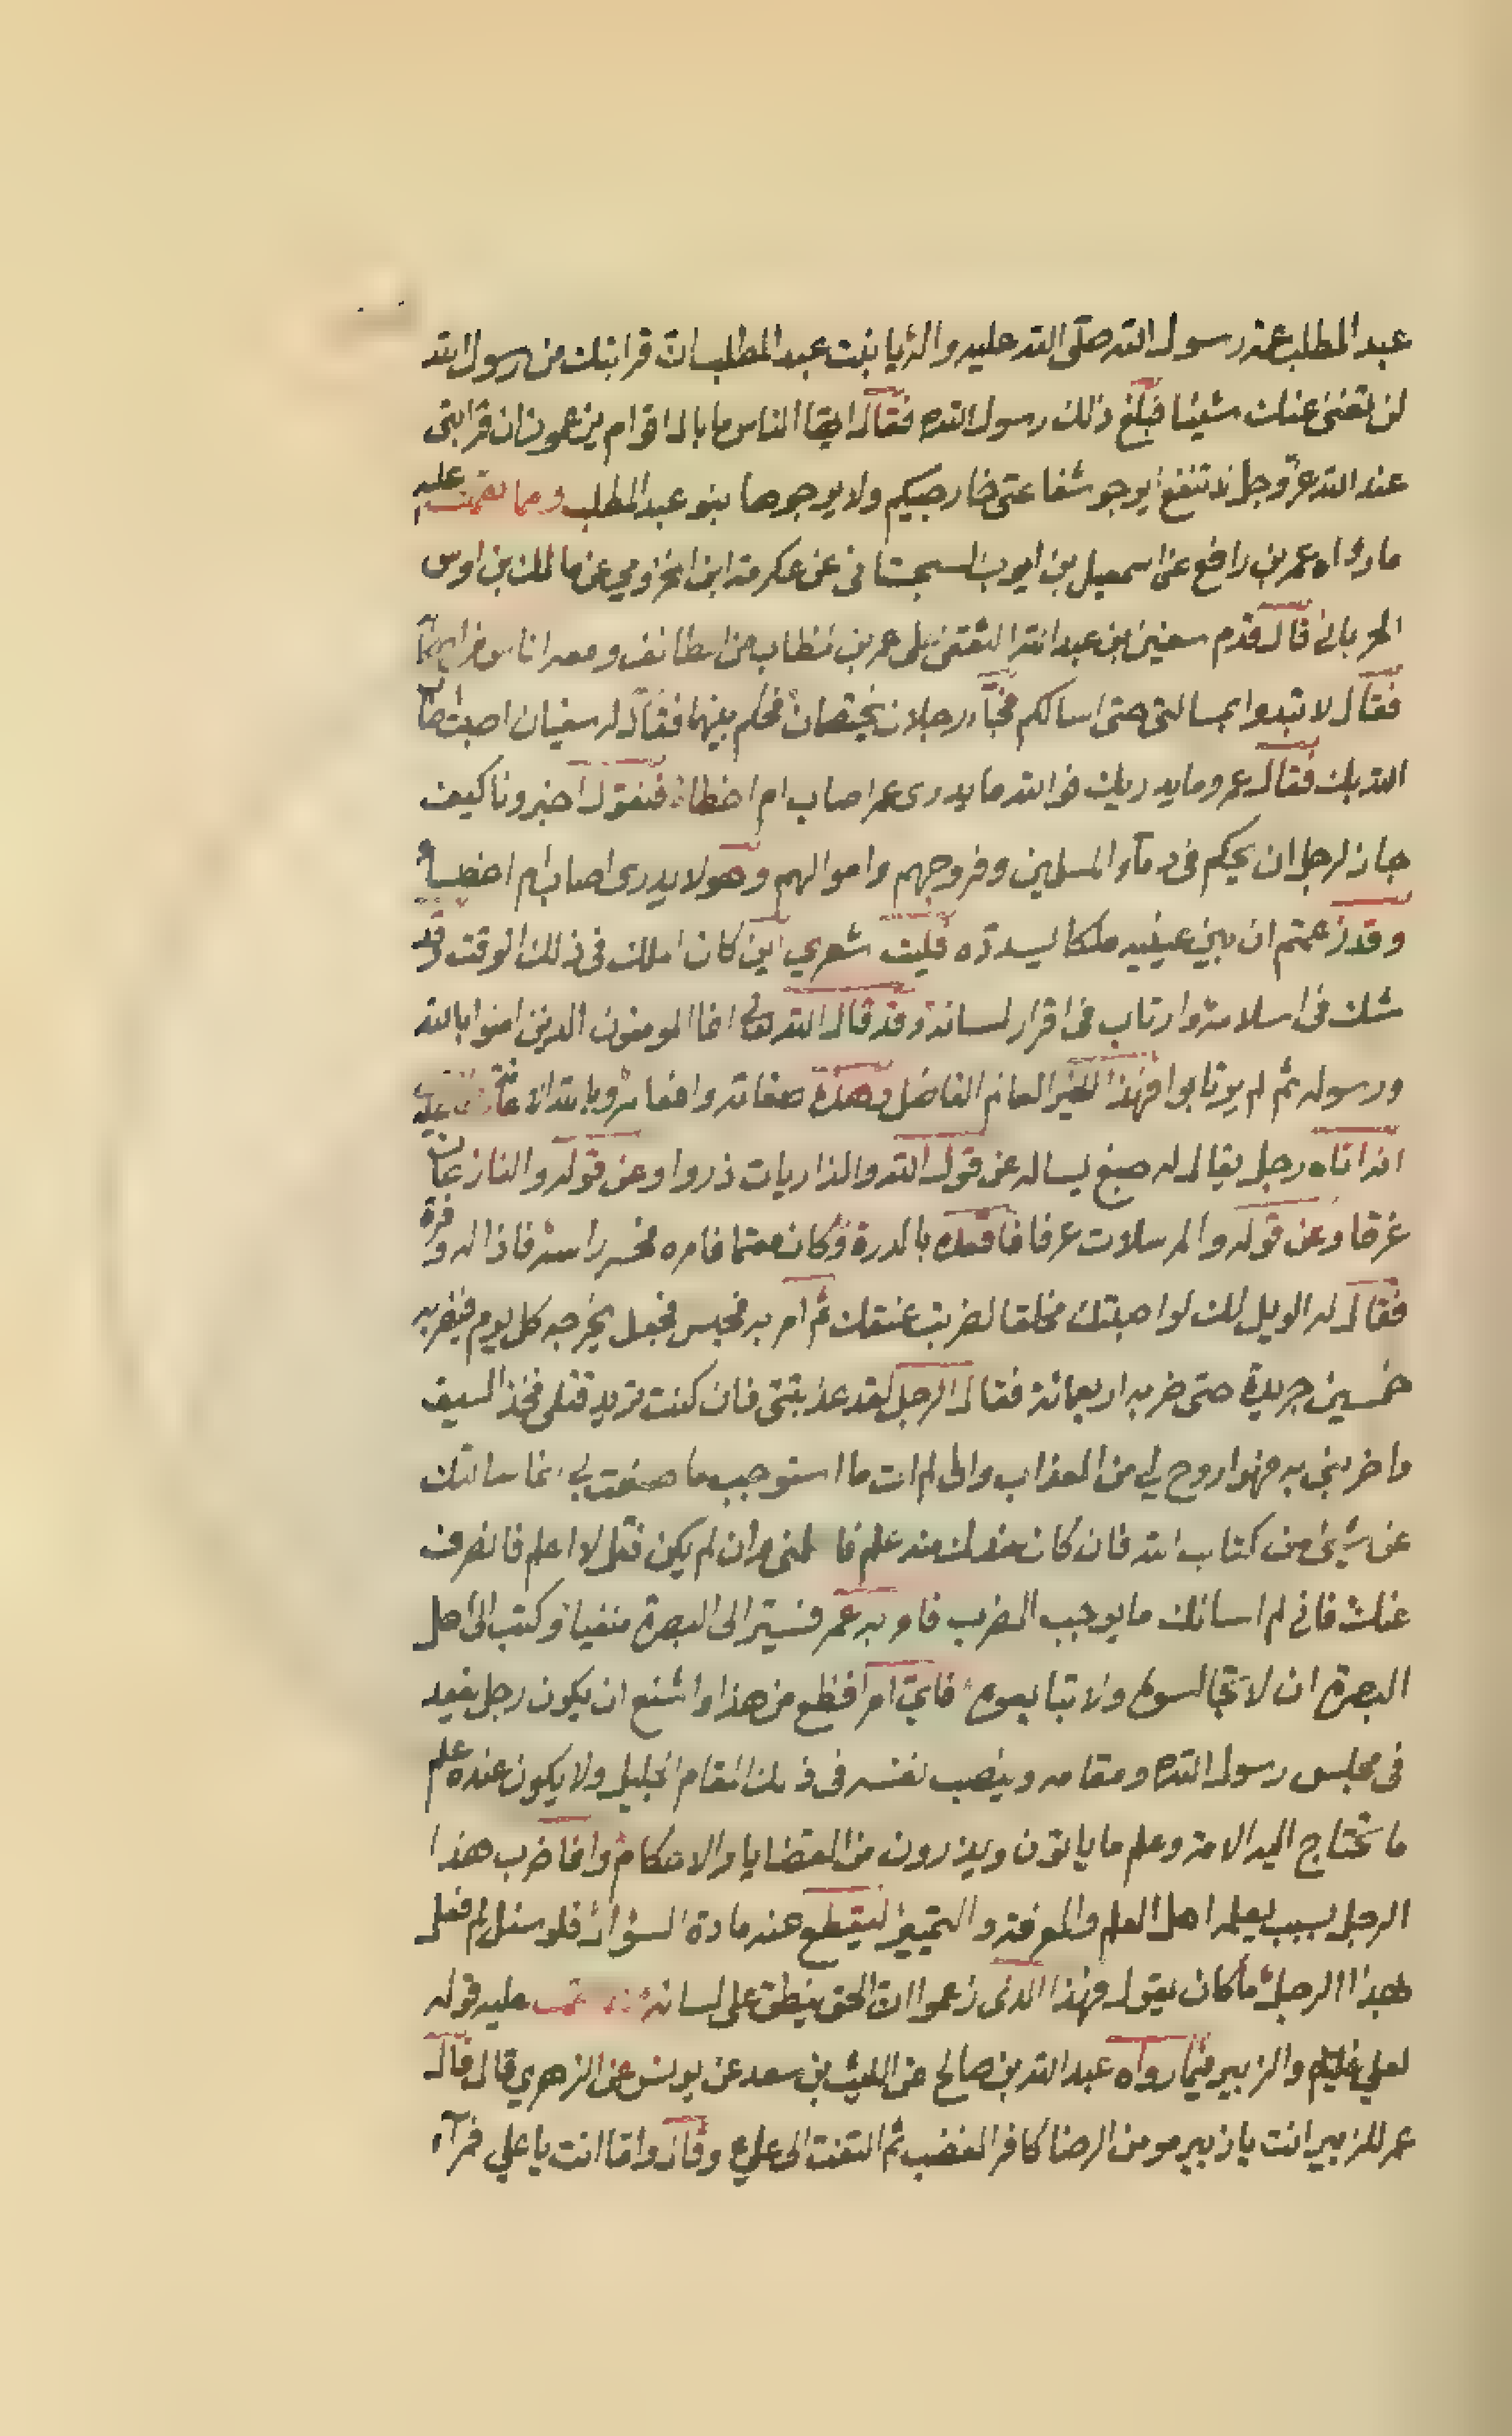 عبد المطلب عمة رسول الله صلى الله عليه واله يا بنت عبد المطلب ان قرابتك من رسول الله
لن تغني عنك شيئا فبلغ ذلك رسول الله ص فقال ايها الناس ما بال اقوام يزعمون ان قرابتى
عند الله عز وجل لا تنفع ايرجو شفاعتى خارجيكم ولا يرجوها بنو عبد المطلب ومما نقمت عليه
ما رواه عمر بن رافع عن اسمعيل بن ايوب السجستانى عن عكرمة ابن المخزومي عن مالك بن اوس
قال قدم سفين بن عبد الله الثقفى على عمر بن خطاب من الطائف ومعه اناس من
فقال لا تبدوا بمسالتى حتى اسالكم فجآء رجلان يختصمان فحكم بينهما فقال له سفيان اصبت
الله بك فقال عمر وما يدريك فوالله ما يدرى عمر اصاب ام اخطا فنقول اخبرونا كيف
جاز لرجل ان يحكم فى دمآء المسلمين وفروجهم واموالهم وهو لا يدرى اصاب ام اخطا
وقد زعمتم ان بين عينيه ملكا يسدده فليت شعري اين كان الملك فى ذلك الوقت قد
شك فى اسلامه وارتاب فى اقرار لسانه وقد قال الله تعالى انما المومنون الذين امنوا بالله
ورسوله ثم لم يرتابوا فهذا الخير العالم الفاضل وهذه صفاته وافعاله وبالله
اذ اتاه رجل يقال له صبغ يساله عن قول الله والذاريات ذروا وعن قوله والنازعات
غرقا وعن قوله والمرسلات عرفا بالدرة وكان معتما فامره فحسر راسه فاذا له وفرة
فقال له الويل لك لو اصبتك محلقا لضربت عنقك ثم امر به فحبس فجعل يخرجه كل يوم فيضربه
خمسين جريدة حتى ضربه اربعمائة فقال الرجل لقد عذبتنى فان كنت تريد قتلى فخذ السيف
واضربنى به فهو اروح لي من العذاب وانى لم ات ما استوجب ما صنعت بي انما سالتك
عن شيئ من كتاب الله فان كان عندك منه علم وان لم يكن فقل لا اعلم فانصرف
عنك فانى لم اسالك ما يوجب الضرب فامر به عمر فسير الى البصرة منفيا وكتب الى اهل
البصرة ان لا تجالسوه ولا تبايعوه فاي امر افظع من هذا واشنع ان يكون رجل يقعد
فى مجلس رسول الله ص ومقامه وينصب نفسه فى ذلك المقام الجليل ولا يكون عنده علم
ما تحتاج اليه الامة وعلم ما ياتون ويذرون من القضايا والاحكام وانما ضرب هذا
الرجل بسبب ليعلم اهل العلم والمعرفة والتمييز لينقطع عنه مادة السؤال فلو سئل لم فعل
بهذا الرجل ما كان يقول فهذا الذى زعموا ان الحق ينطق على لسانه عليه قوله
لعلي عليه السلم والزبير فيما رواه عبد الله بن صالح عن الليث بن سعد عن يونس عن الزهري قال قال
عمر للزبير انت يا زبير مومن الرضا كافر الغضب ثم التفت الى علي ع وقال واما انت يا علي